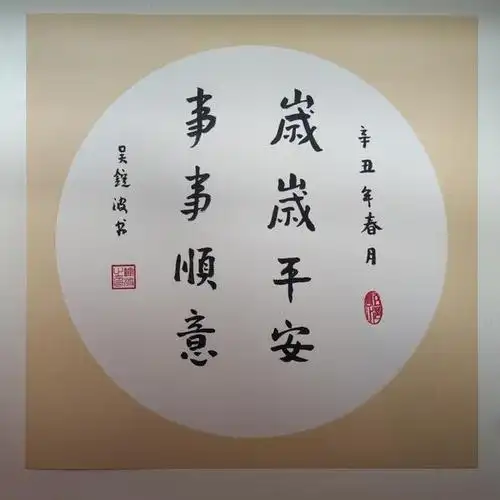 辛丑年春月
歲歲平安
事事順意
吴鍾波书